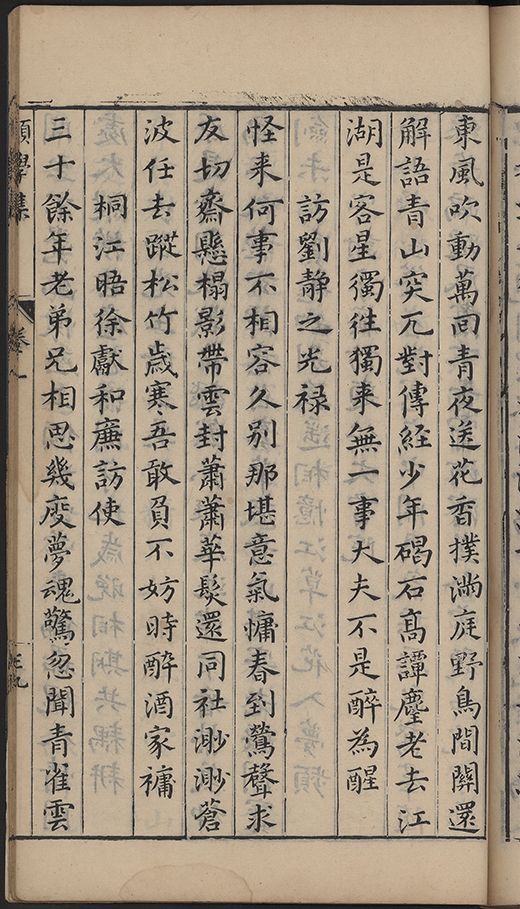 東風吹動萬回青夜送花香撲滿庭野鳥間關還
解語青山突兀對傳經少年碣石髙譚麈老去江
湖是客星獨徃獨來無一事大夫不是醉為醒
訪劉靜之光禄
怪来何事不相容久别那堪意氣慵春到鶯聲求
友切齋懸榻影帶雲封蕭蕭華髪還同社渺渺蒼
波任去蹤松竹歳寒吾敢負不妨時醉酒家𥛱
桐江晤徐獻和廉訪使
三十餘年老弟兄相思幾度夢魂驚忽聞青雀雲
學集
卷